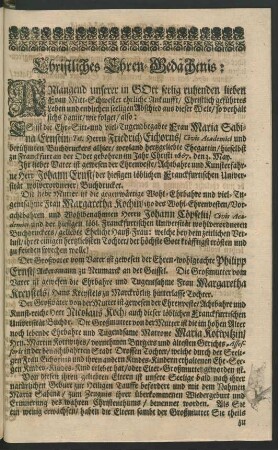 Christliches Ehren-Gedächtnis:
Anlangend unserer in GOtt selig ruhenden lieben
Frau Mit-Schwester ehrliche Ankunfft, Christlich geführtes
Leben und endlichen seligen Abschied aus dieser Welt, so verhält
sichs damit, wie folget, also:
Es ist die Ehr-Sitt- und viel-Tugendbegabte Frau Maria Sabi-
na Ernstin, Tit. Herrn Friedrich Eichorns, Civis Academici und
berühmten Buchdruckers alhier, weyland hertzgeliebte Ehegattin, hieselbst
zu Franckfurt an der Oder gebohren im Jahr Christi 1667. den 1. May.
Ihr lieber Vater ist gewesen der Ehrenveste, Achtbahre und Kunsterfahr-
ne Herr Johann Ernst, der hiesigen löblichen Franckfurtischen Univer-
sität wolverordneter Buchdrucker.
Die liebe Mutter ist die gegenwärtige Wohl-Ehrbahre und viel-Tu-
gendsahme Frau Margaretha Kochin, itzo des Wohl-Ehrenvesten, Vor-
achtbahren und Wohlbenahmten Herrn Johann Cöpselii, Civis Aca-
demici und der hiesigen löbl. Franckfurtischen Universität wolverordneten
Buchdruckers, geliebte Eheliche Hauß-Frau; welche bey dem zeitlichen Ver-
lust, ihrer einigen hertzliebsten Tochter, der höchste Gott kräfftigst trösten und
zu seinem erhalten wolle!
Der Großvater vom Vater ist gewesen der Ehren-wohlgeachte Philipp
Ernst, Ackermann zu Neumarck an der Geissel. Die Großmutter vom
Vater ist gewesen die Ehrbahre und Tugendsahme Frau Margaretha
Kreyselis, Hans Kreiselis zu Marckröhlitz hinterlaßne Tochter.
Der Großvater von der Mutter ist gewesen der Ehrenvester, Achtbahre und
Kunst-reiche Herr Nicolaus Koch, auch dieser löblichen Franckfurtischen
Universität Buchdr. Die Großmutter von der Mutter ist die im hohen Alter
noch lebende Ehrbahre und Tugendsame Matrone Maria Kotwitzin,
Herrn Martin Kottwitzes, vornehmen Bürgers und ältesten Gerichts-Asses-
soris in der benachbarten Stadt Drossen Tochter, welche durch der Seeli-
gen Frau Eichornin und ihren andern Kindes-Kindern erhaltenen Ehe-See-
gen Kindes-Kindes-Kind erlebet hat, oder Elter-Großmutter geworden ist.
Von diesen ihren geliebten Eltern ist unsere Seelige bald nach ihrer
natürlichen Geburt zur Heiligen Tauffe befördert und mit dem Nahmen
Maria Sabina, zum Zeugnis ihrer überkommenen Wiedergeburt und
Erinnerung des wahren Christenthums, benennet worden. Als Sie
ein wenig erwachsen, haben die Eltern samt der Großmutter Sie theils
zu